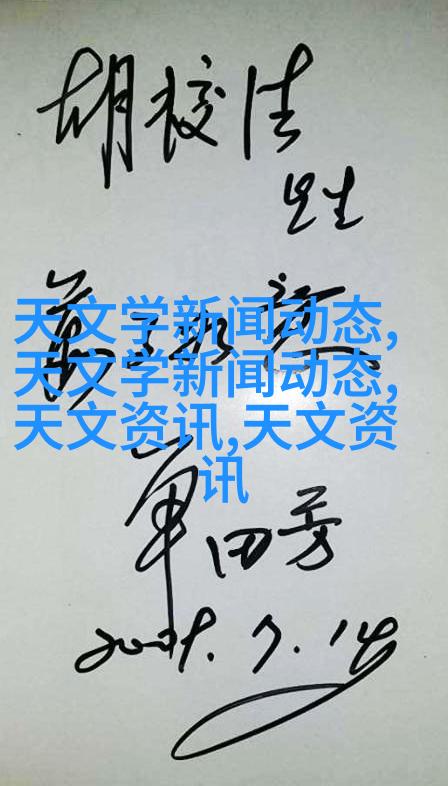 胡校
先生
天文学新闻动态,
天文学新闻动态,
天文资讯,天文资
讯
单田芳